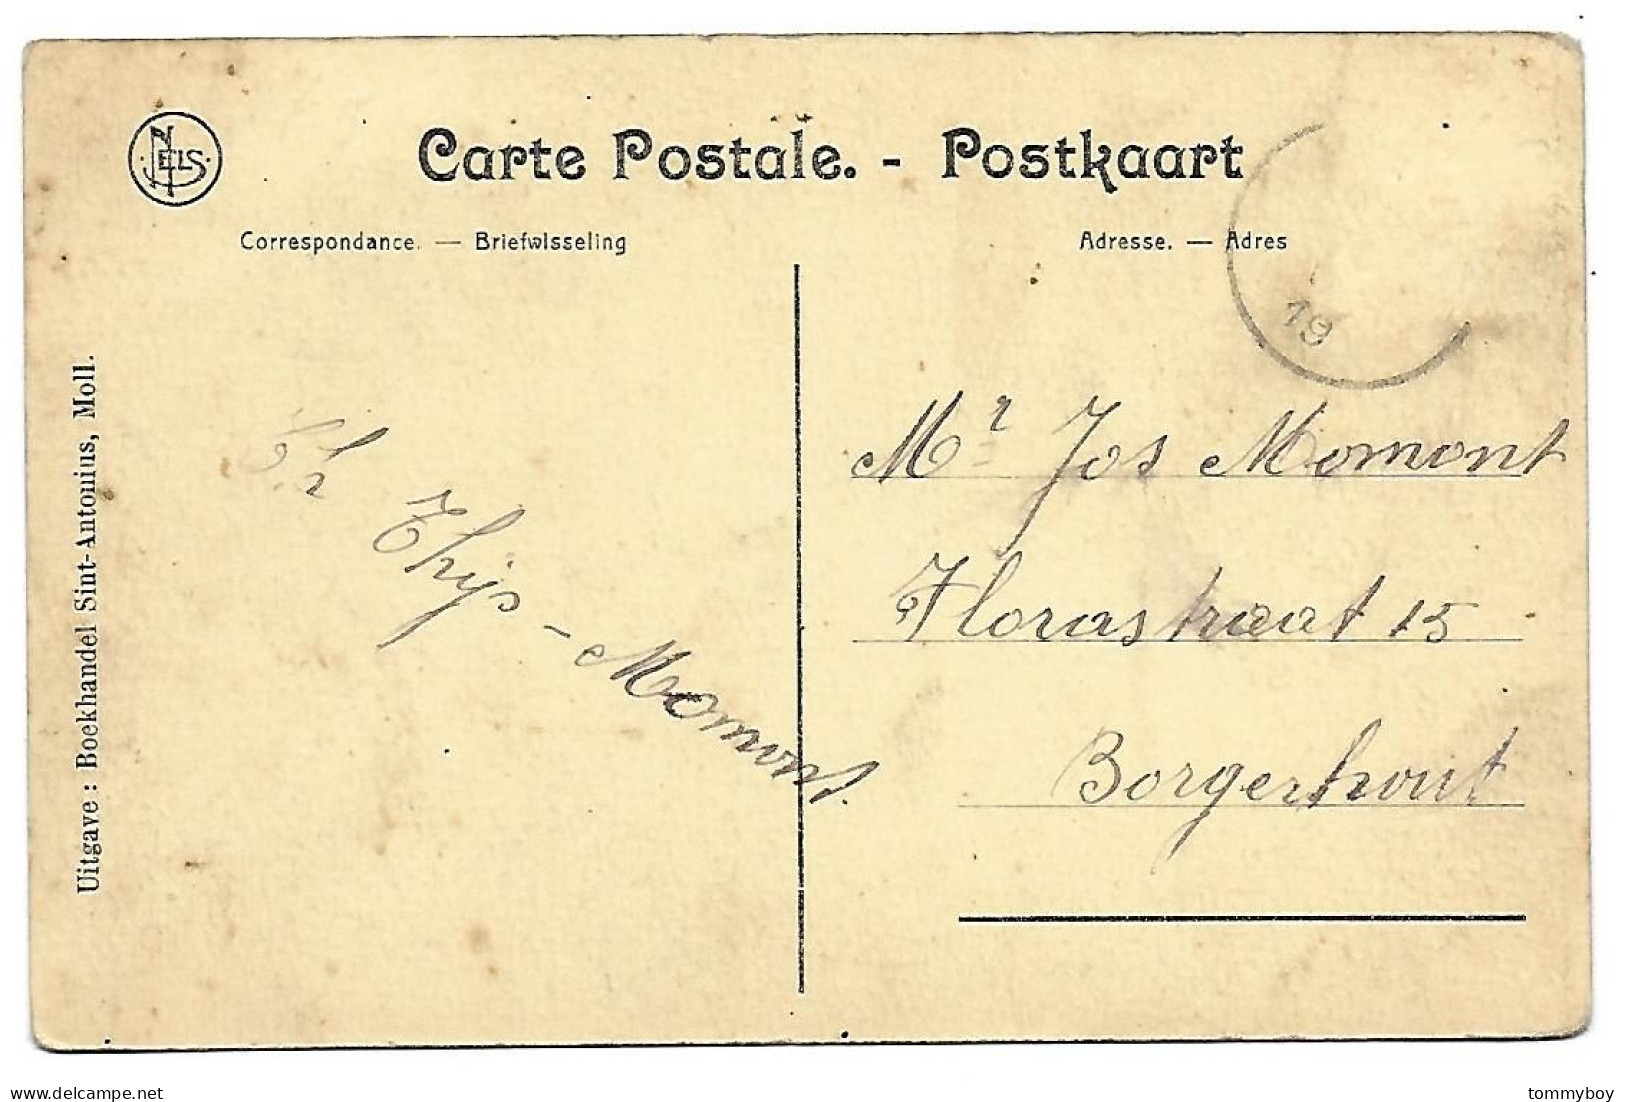 NELS
Carte Postale. - Postkaart
Correspondance. — Briefwisseling
Adresse. — Adres
19
Uitgave : Boekhandel Sint-Antonius, Moll.
Thijs - Momont.
Mr Jos Momont
Florastraat 15
Borgerhout
delcampe.net
tommyboy